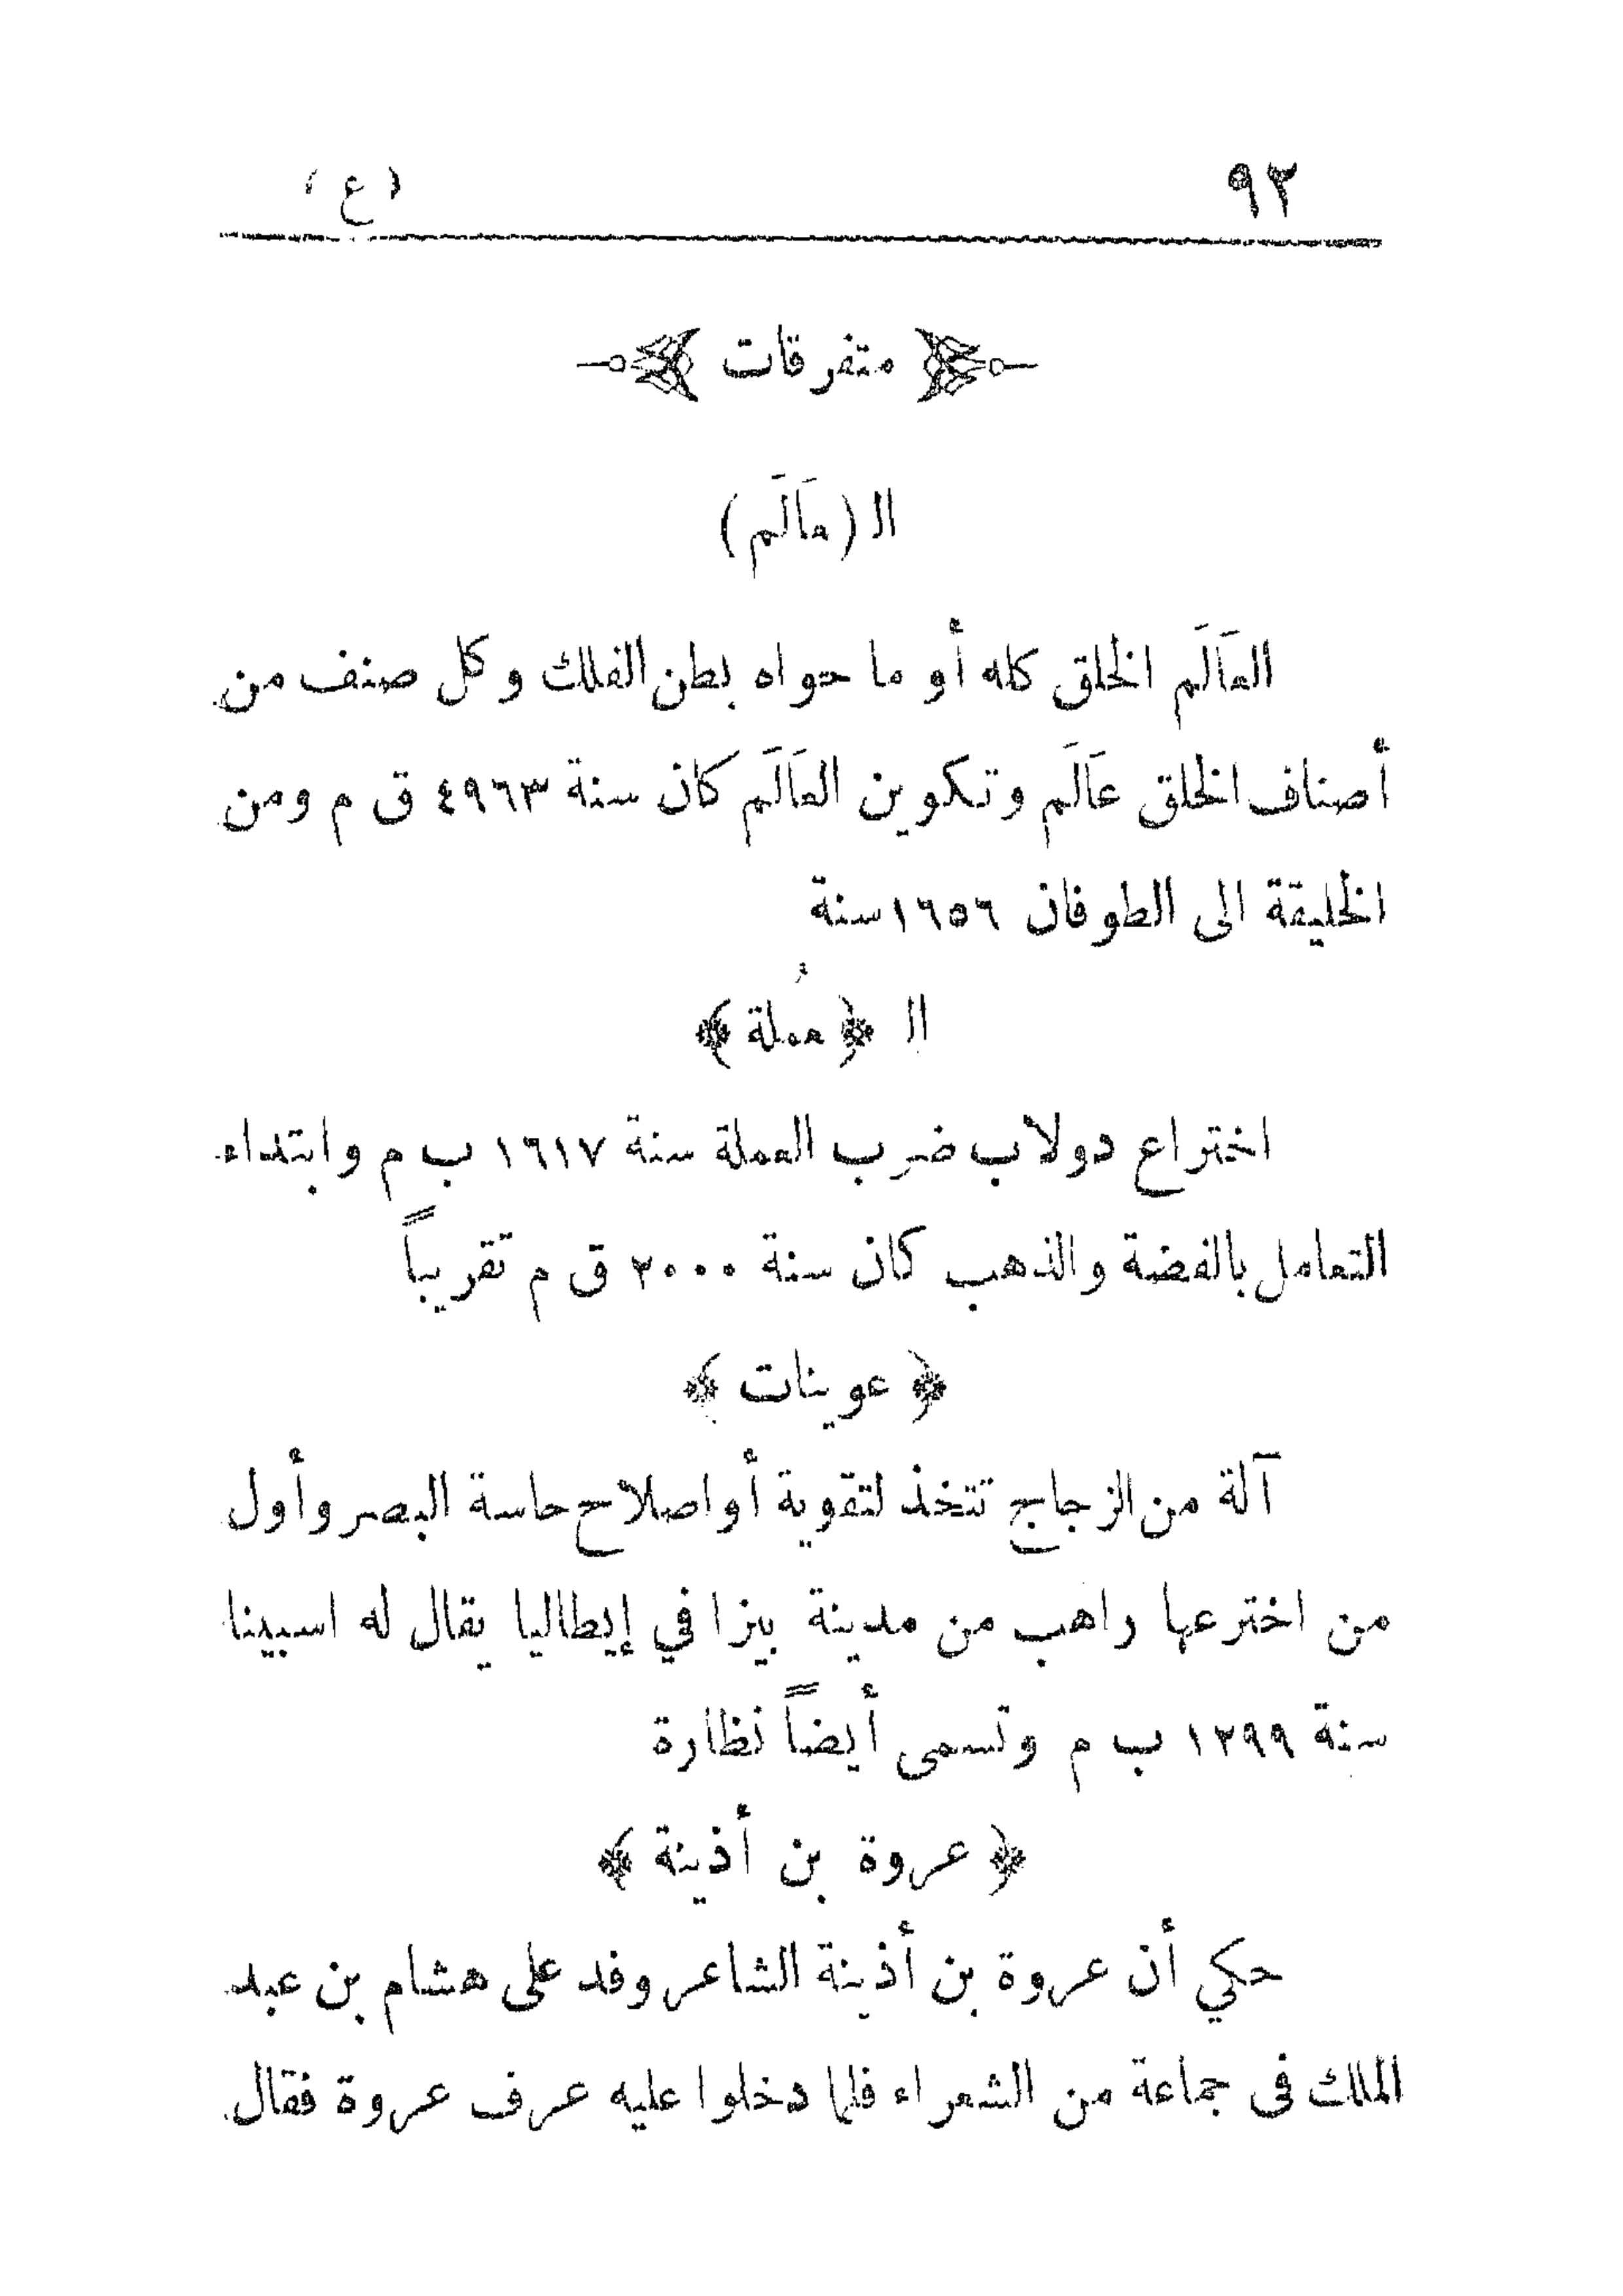 ٩٢ (ع)
متفرقات
الـ (عَالَم)
العَالَم الخلق كله أو ما حواه بطن الفلك وكل صنف من
أصناف الخلق عَالَم وتكوين العَالَم كان سنة ٤٩٦٣ ق م ومن
الخليقة الى الطوفان ١٦٥٦ سنة
الـ ﴿عُملة﴾
اختراع دولاب ضرب العملة سنة ١٦١٧ ب م وابتداء
التعامل بالفضة والذهب كان سنة ٢٠٠٠ ق م تقريباً
﴿عوينات﴾
آلة من الزجاج تتخذ لتقوية أو اصلاح حاسة البصر وأول
من اخترعها راهب من مدينة بيزا في إيطاليا يقال له اسبينا
سنة ١٢٩٩ ب م وتسمى أيضاً نظارة
﴿عروة بن أذينة﴾
حكي أن عروة بن أذينة الشاعر وفد على هشام بن عبد
الملك فى جماعة من الشعراء فلما دخلوا عليه عرف عروة فقال